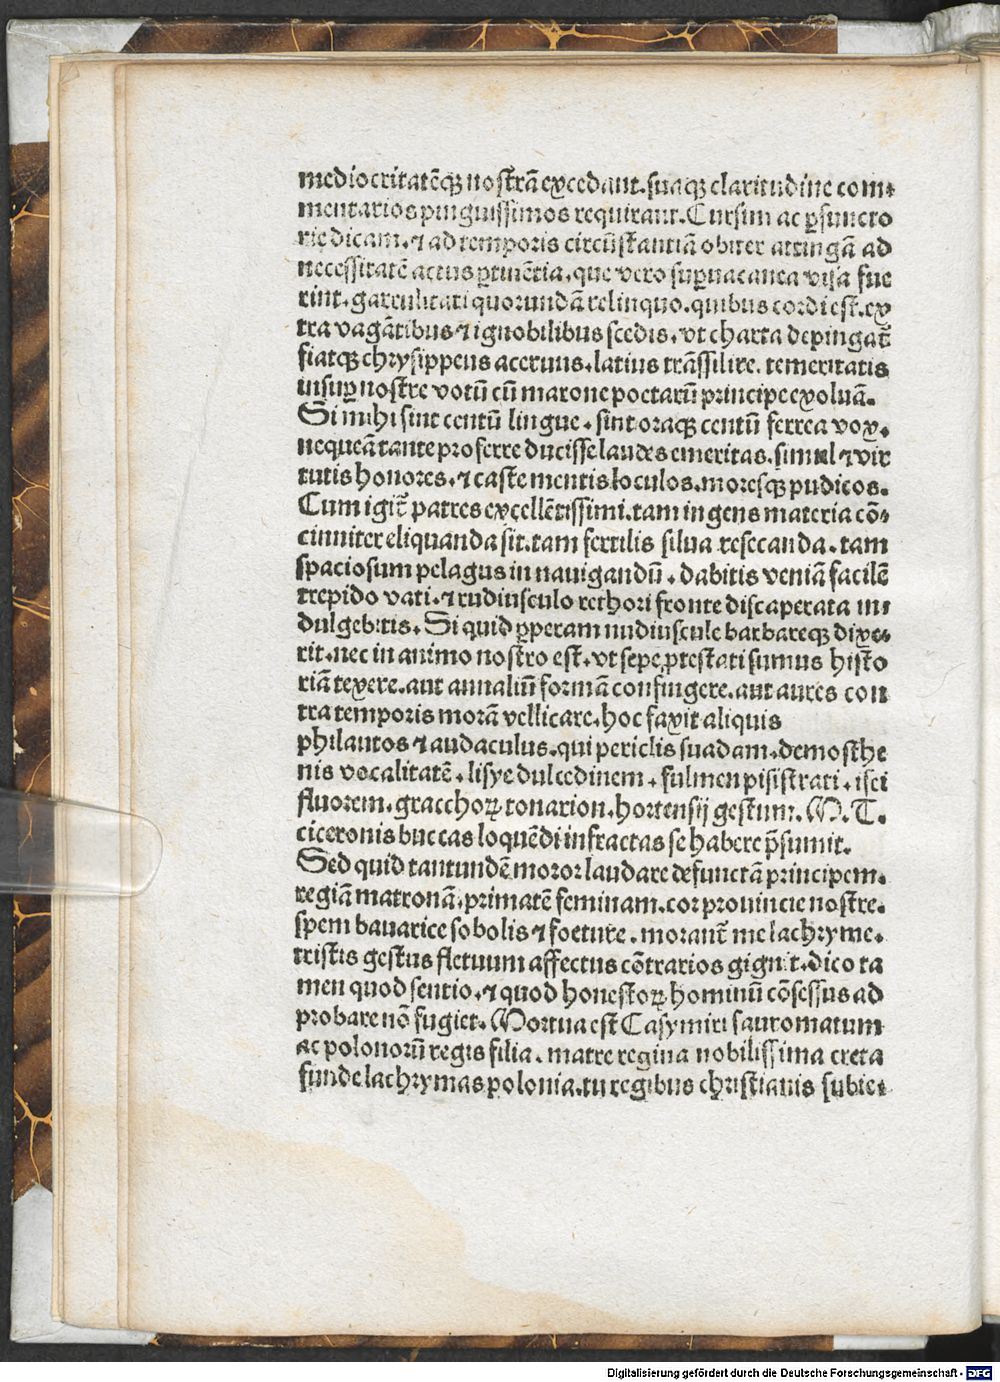 mediocritatēqȝ nostrā excedant. suaqȝ claritudine com⸗
mentarios pinguissimos requirant. Cursim ac ꝑfuncto
rie dicam. ⁊ ad temporis circūstantiā obiter attingā ad
necessitatē actus ꝑtinētia. que vero suꝑuacanea visa fue
rint. garrulitati quorundā relinquo. quibus cordi est. ex
tra vagātibus ⁊ ignobilibus scedis. vt charta depingat᷑
fiatqȝ chrysippeus aceruus. latius trāssilire. temeritatis
insuꝑ nostre votū cū marone poetarū principe exoluā.
Si mihi sint centū lingue. sint oraqȝ centū ferrea vox.
nequeā tante proferre ducisse laudes emeritas. simul ⁊ vir
tutis honores. ⁊ caste mentis loculos. moresqȝ pudicos.
Cum igit᷑ patres excellētissimi. tam ingens materia cō⸗
cinniter eliquanda sit. tam fertilis silua resecanda. tam
spaciosum pelagus in nauigandū. dabitis veniā facilē
trepido vati. ⁊ rudiusculo rethori fronte discaperata in⸗
dulgebitis. Si quid ꝑperam nudiuscule barbareqȝ dixe⸗
rit. nec in animo nostro est. vt sepe ꝓtestati sumus histo
riā texere. aut annaliū formā confingere. aut aures con
tra temporis morā vellicare. hoc faxit aliquis
philautos ⁊ audaculus. qui periclis suadam. demosthe
nis vocalitatē. lisye dulcedinem. fulmen pisistrati. isei
fluorem. gracchoꝝ tonarion. hortensij gestum. M. T.
ciceronis buccas loquēdi infractas se habere p̄sumit.
Sed quid tantundē moror laudare defunctā principem.
regiā matronā. primatē feminam. cor prouincie nostre.
spem bauarice sobolis ⁊ foeture. morant᷑ me lachryme.
tristis gestus fletuum affectus cōtrarios gignit. dico ta
men quod sentio. ⁊ quod honestoꝝ hominū cōsessus ad
probare nō fugiet. Mortua est Casymiri sauromatum
ac polonorū regis filia. matre regina nobilissima creta
funde lachrymas polonia. tu regibus christianis subie⸗
Digitalisierung gefördert durch die Deutsche Forschungsgemeinschaft - DFG